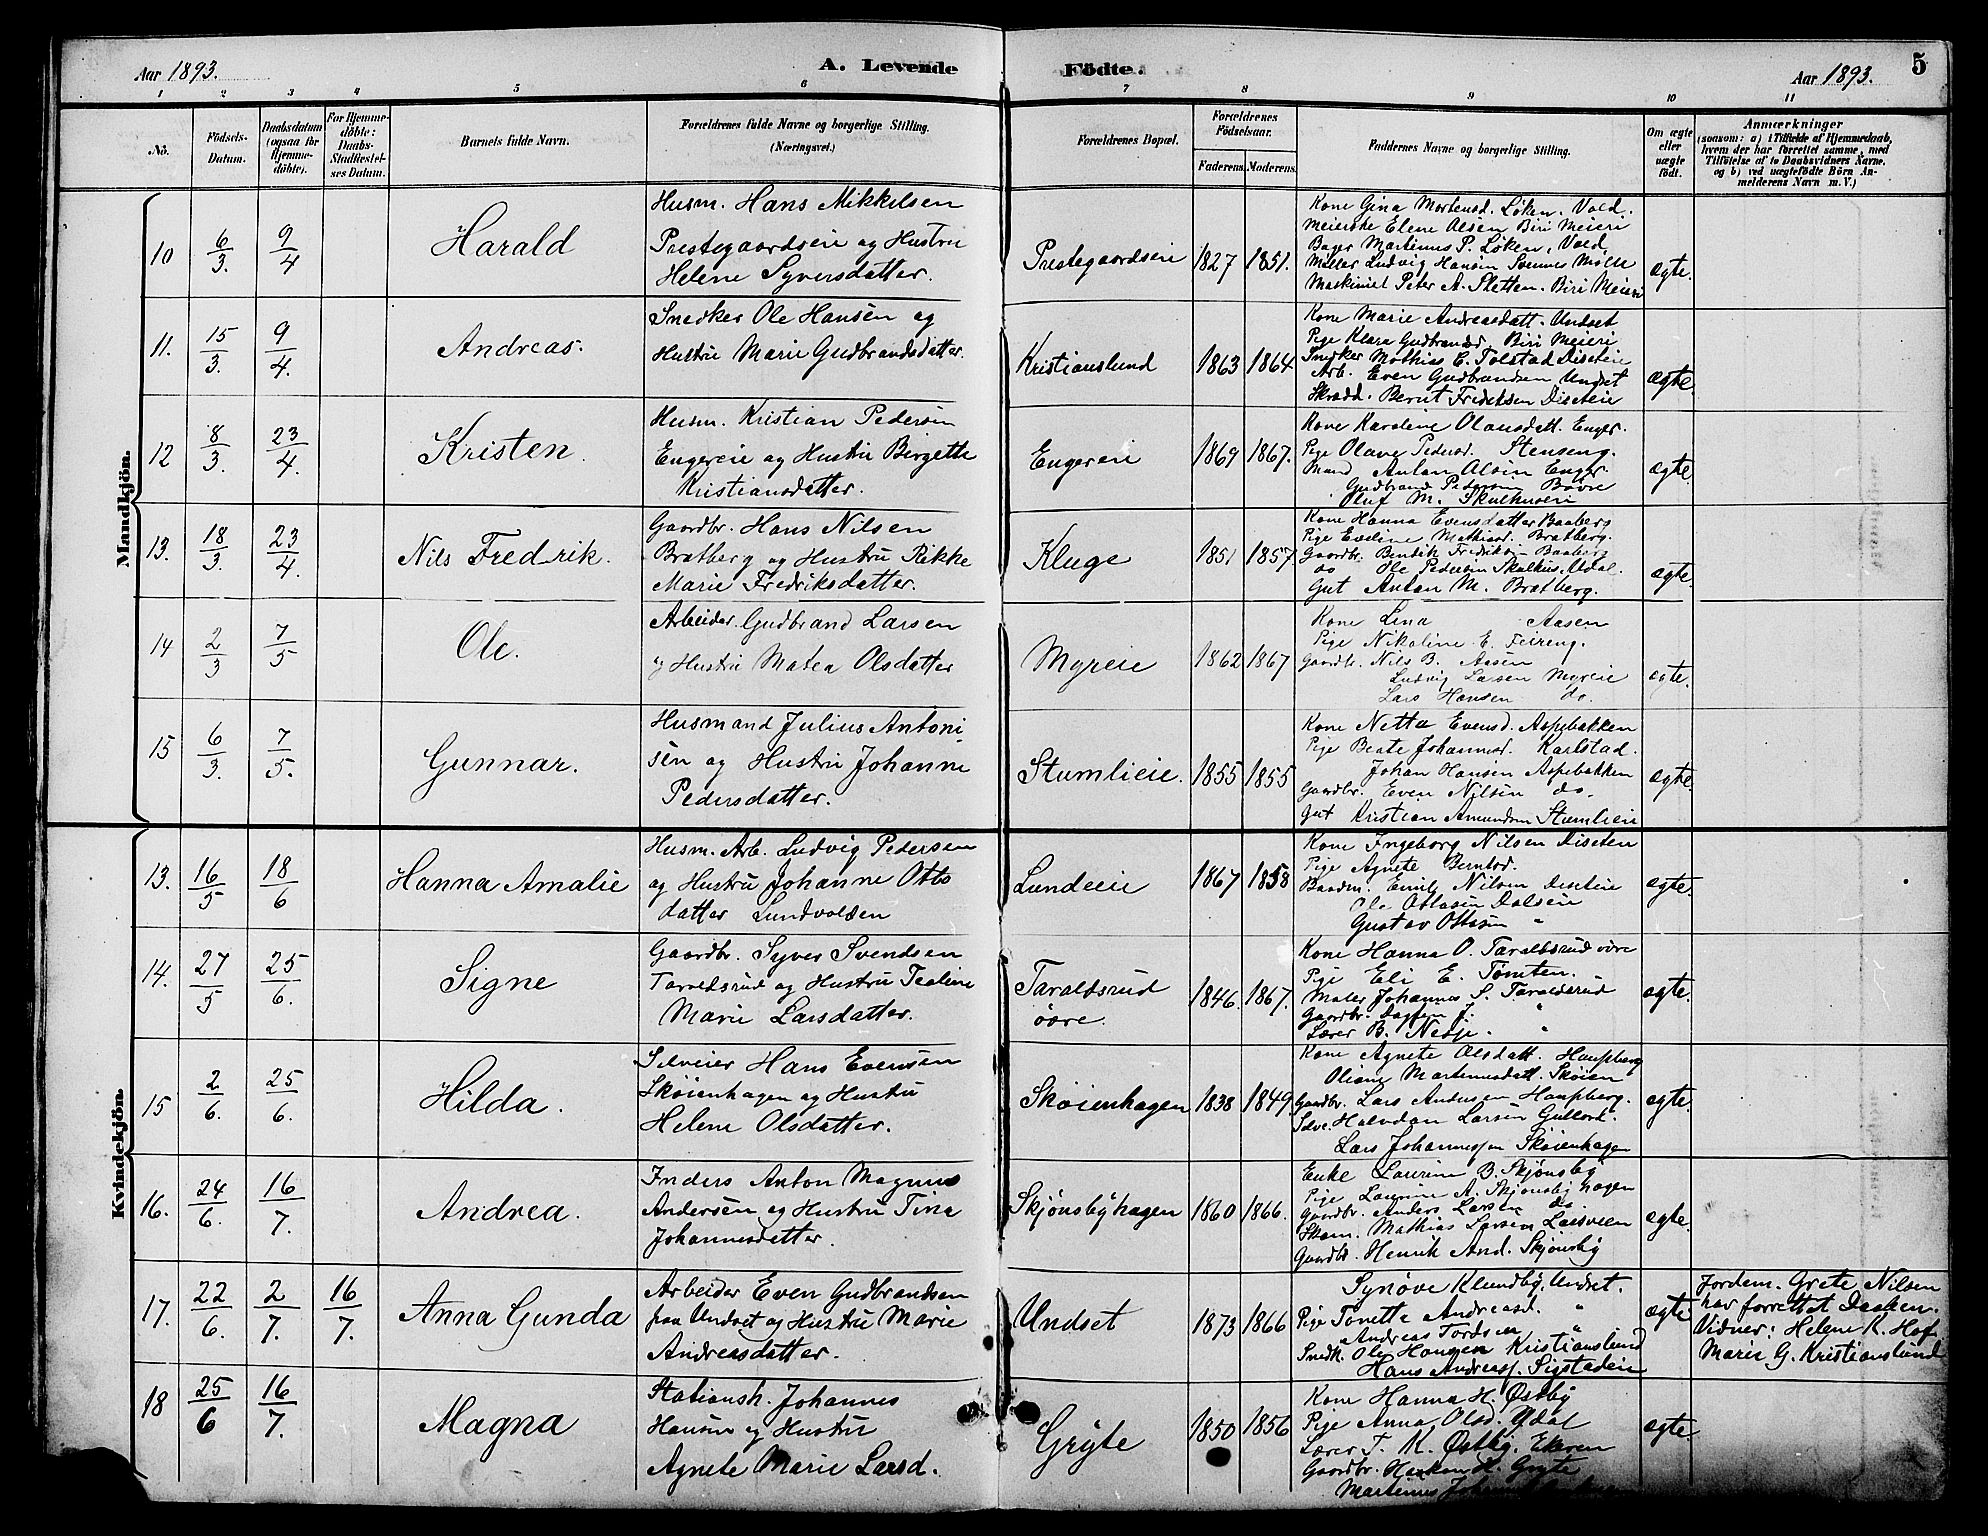 Aar 1893. A. Levende Födte. Aar 1893. 5
1 2 3 4 5 6 7 8 9 10 11
No. Födsels-Datum. Daabsdatum (ogsaa for Hjemmedöbte). For Hjemmedöbte: Daabs-Stadfæstelses Datum. Barnets fulde Navn. Forældrenes fulde Navne og borgerlige Stilling. (Næringsvei.) Forældrenes Bopæl. Forældrenes Födselsaar. Faderens Moderens. Faddernes Navne og borgerlige Stilling. Om ægte eller uægte födt. Anmærkninger (saasom: a) i Tilfælde af Hjemmedaab, hvem der har forrettet samme, med Tilföielse af to Daabsvidners Navne, og b) ved uægtefödte Börn Anmelderens Navn m. V.)
Mandkjön.
10 6/3. 9/4 Harald
Husm. Hans Mikkelsen
Prestegaardseie og Hustru
Helene Syversdatter.
Prestegaardseie 1827 1851.
Kone Gina Mortensd. Løken. Vold.
Meierske Elene Olsen Biri Meieri
Bager Martinus P. Løken, Vold
Møller Ludvig Hansen Svennes Mølle
Maskinist Peter A. Sletten. Biri Meieri
ægte.
11. 15/3. 9/4. Andreas.
Snedker Ole Hansen og
Hustru Marie Gudbrandsdatter.
Kristianslund 1863 1864
Kone Marie Andreasdatt. Undset
Pige Klara Gudbrandsd. Biri Meieri
Snedker Mathias E. Tolstad Diseteie
Arb. Even Gudbrandsen Undset
Skrædd. Bernt Fredriksen Diseteie
ægte.
12 8/3. 23/4. Kristen.
Husm. Kristian Pedersen
Engereie og Hustru Birgette
Kristiansdatter.
Engereie 1869 1867.
Kone Karoline Olausdatt. Enger.
Pige Olave Pedersd. Stenseng.
Mand Anton Olsen Enger.
Gudbrand Pedersen Bøvre
Oluf M. Skulhuseie
ægte.
13. 18/3. 23/4. Nils Fredrik.
Gaardbr. Hans Nilsen
Bratberg og Hustru Rikke
Marie Fredriksdatter.
Kluge 1851 1857.
Kone Hanna Evensdatter Baaberg
Pige Eveline Mathisd. Bratberg.
Gaardbr. Bendik Fredriks. Baaberg
do Ole Pedersen Skulhus. Udal.
Gut Anton M. Bratberg.
ægte.
14 2/3 7/5 Ole.
Arbeider Gudbrand Larsen
og Hustru Matea Olsdatter
Myreie 1862 1867
Kone Lina Aasen
Pige Nikoline E. Feireng.
Gaardb. Nils B. Aasen
Ludvig Larsen Myreie
Lars Hansen do.
ægte.
15 6/3. 7/5. Gunnar.
Husmand Julius Antoni-
sen og Hustru Johanne
Pedersdatter.
Stumlieie. 1855 1855
Kone Netta Evensd. Aspebakken
Pige Beate Johannesd. Karlstad.
Johan Hansen Aspebakken
Gaardbr. Even Nilsen do.
Gut Kristian Amundsen Stumlieie
ægte.
Kvindekjön.
13. 16/5 18/6 Hanna Amalie
Husm. Arb. Ludvig Pedersen
og Hustru Johanne Otto
datter Lundvolden
Lundeie 1867 1858
Kone Ingeborg Nilsen Diseten
Pige Agnete Berntsd.
Baadm. Emil Nilsen Diseteie
Ole Ottosen Dalseie
Gustav Ottosen "
ægte.
14. 27/5 25/6. Signe
Gaardbr. Syver Svendsen
Taraldsrud og Hustru Tealine
Marie Larsdatter.
Taraldsrud
övre. 1846. 1867.
Kone Hanna O. Taraldsrud övre
Pige Eli E. Tømten.
Maler Johannes S. Taraldsrud
Gaardbr. Dagfin J. "
Lærer B. Nesje. "
ægte.
15 2/6. 25/6. Hilda.
Selveier Hans Evensen
Skøienhagen og Hustru
Helene Olsdatter.
Skøienhagen 1838 1849.
Kone Agnete Olsdatt. Haugberg
Oliane Martinusdatt. Skøien
Gaardbr. Lars Andersen Haugberg.
Selve. Halvdan Larsen Gullord.
Lars Johannessen Skøienhagen
ægte.
16. 24/6. 16/7. Andrea.
Inders Anton Magnus
Andersen og Hustru Tina
Johannesdatter.
Skjønsbyhagen 1860 1866.
Enke Laurine B. Skjønsby
Pige Laurine A. Skjønsbyhagen
Gaardbr. Anders Larsen do.
Skom. Mathias Larsen Larsveen
Gaardbr. Henrik And. Skjønsby
ægte.
17. 22/6. 2/7. 16/7. Anna Gunda
Arbeider Even Gudbrandsen
paa Undset og Hustru Marie
Andreasdatter.
Undset 1873 1866
Synøve Klundby, Undset.
Pige Tonette Andreasd. "
Andreas Tordsen "
Snedk. Ole Hansen Kristianslund
Hans Andreass. Sigstadeie
ægte
Jordem. Grete Nilsen
har forrettet Daaben.
Vidner: Helene K. Hof
Marie G. Kristianslund
18 25/6 16/7. Magna
Stationsh. Johannes
Hansen og Hustru
Agnete Marie Larsd.
Gryte 1850 1856
Kone Hanna H. Østby
Pige Anna Olsd. Udal
Lærer T. M. Østby. Ekeren
Gaardbr. Haakon H. Gryte
Martinus
ægte.